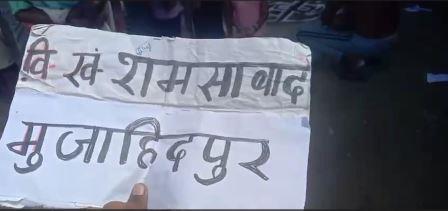 वि खं शमसाबाद
मुजाहिदपुर